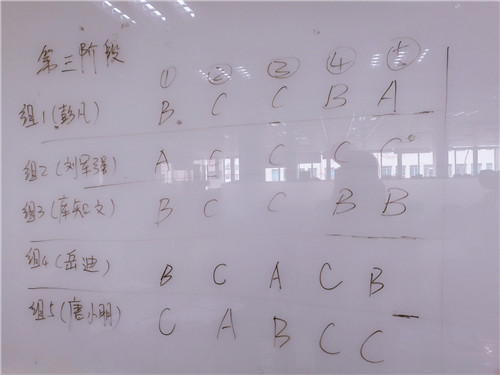 第三阶段 ① ② ③ ④ ⑤
组1(彭凡) B C C B A
组2(刘军强) A C C C C
组3( 文) B C C B B
组4(岳迪) B C A C B
组5(唐小明) C A B C C